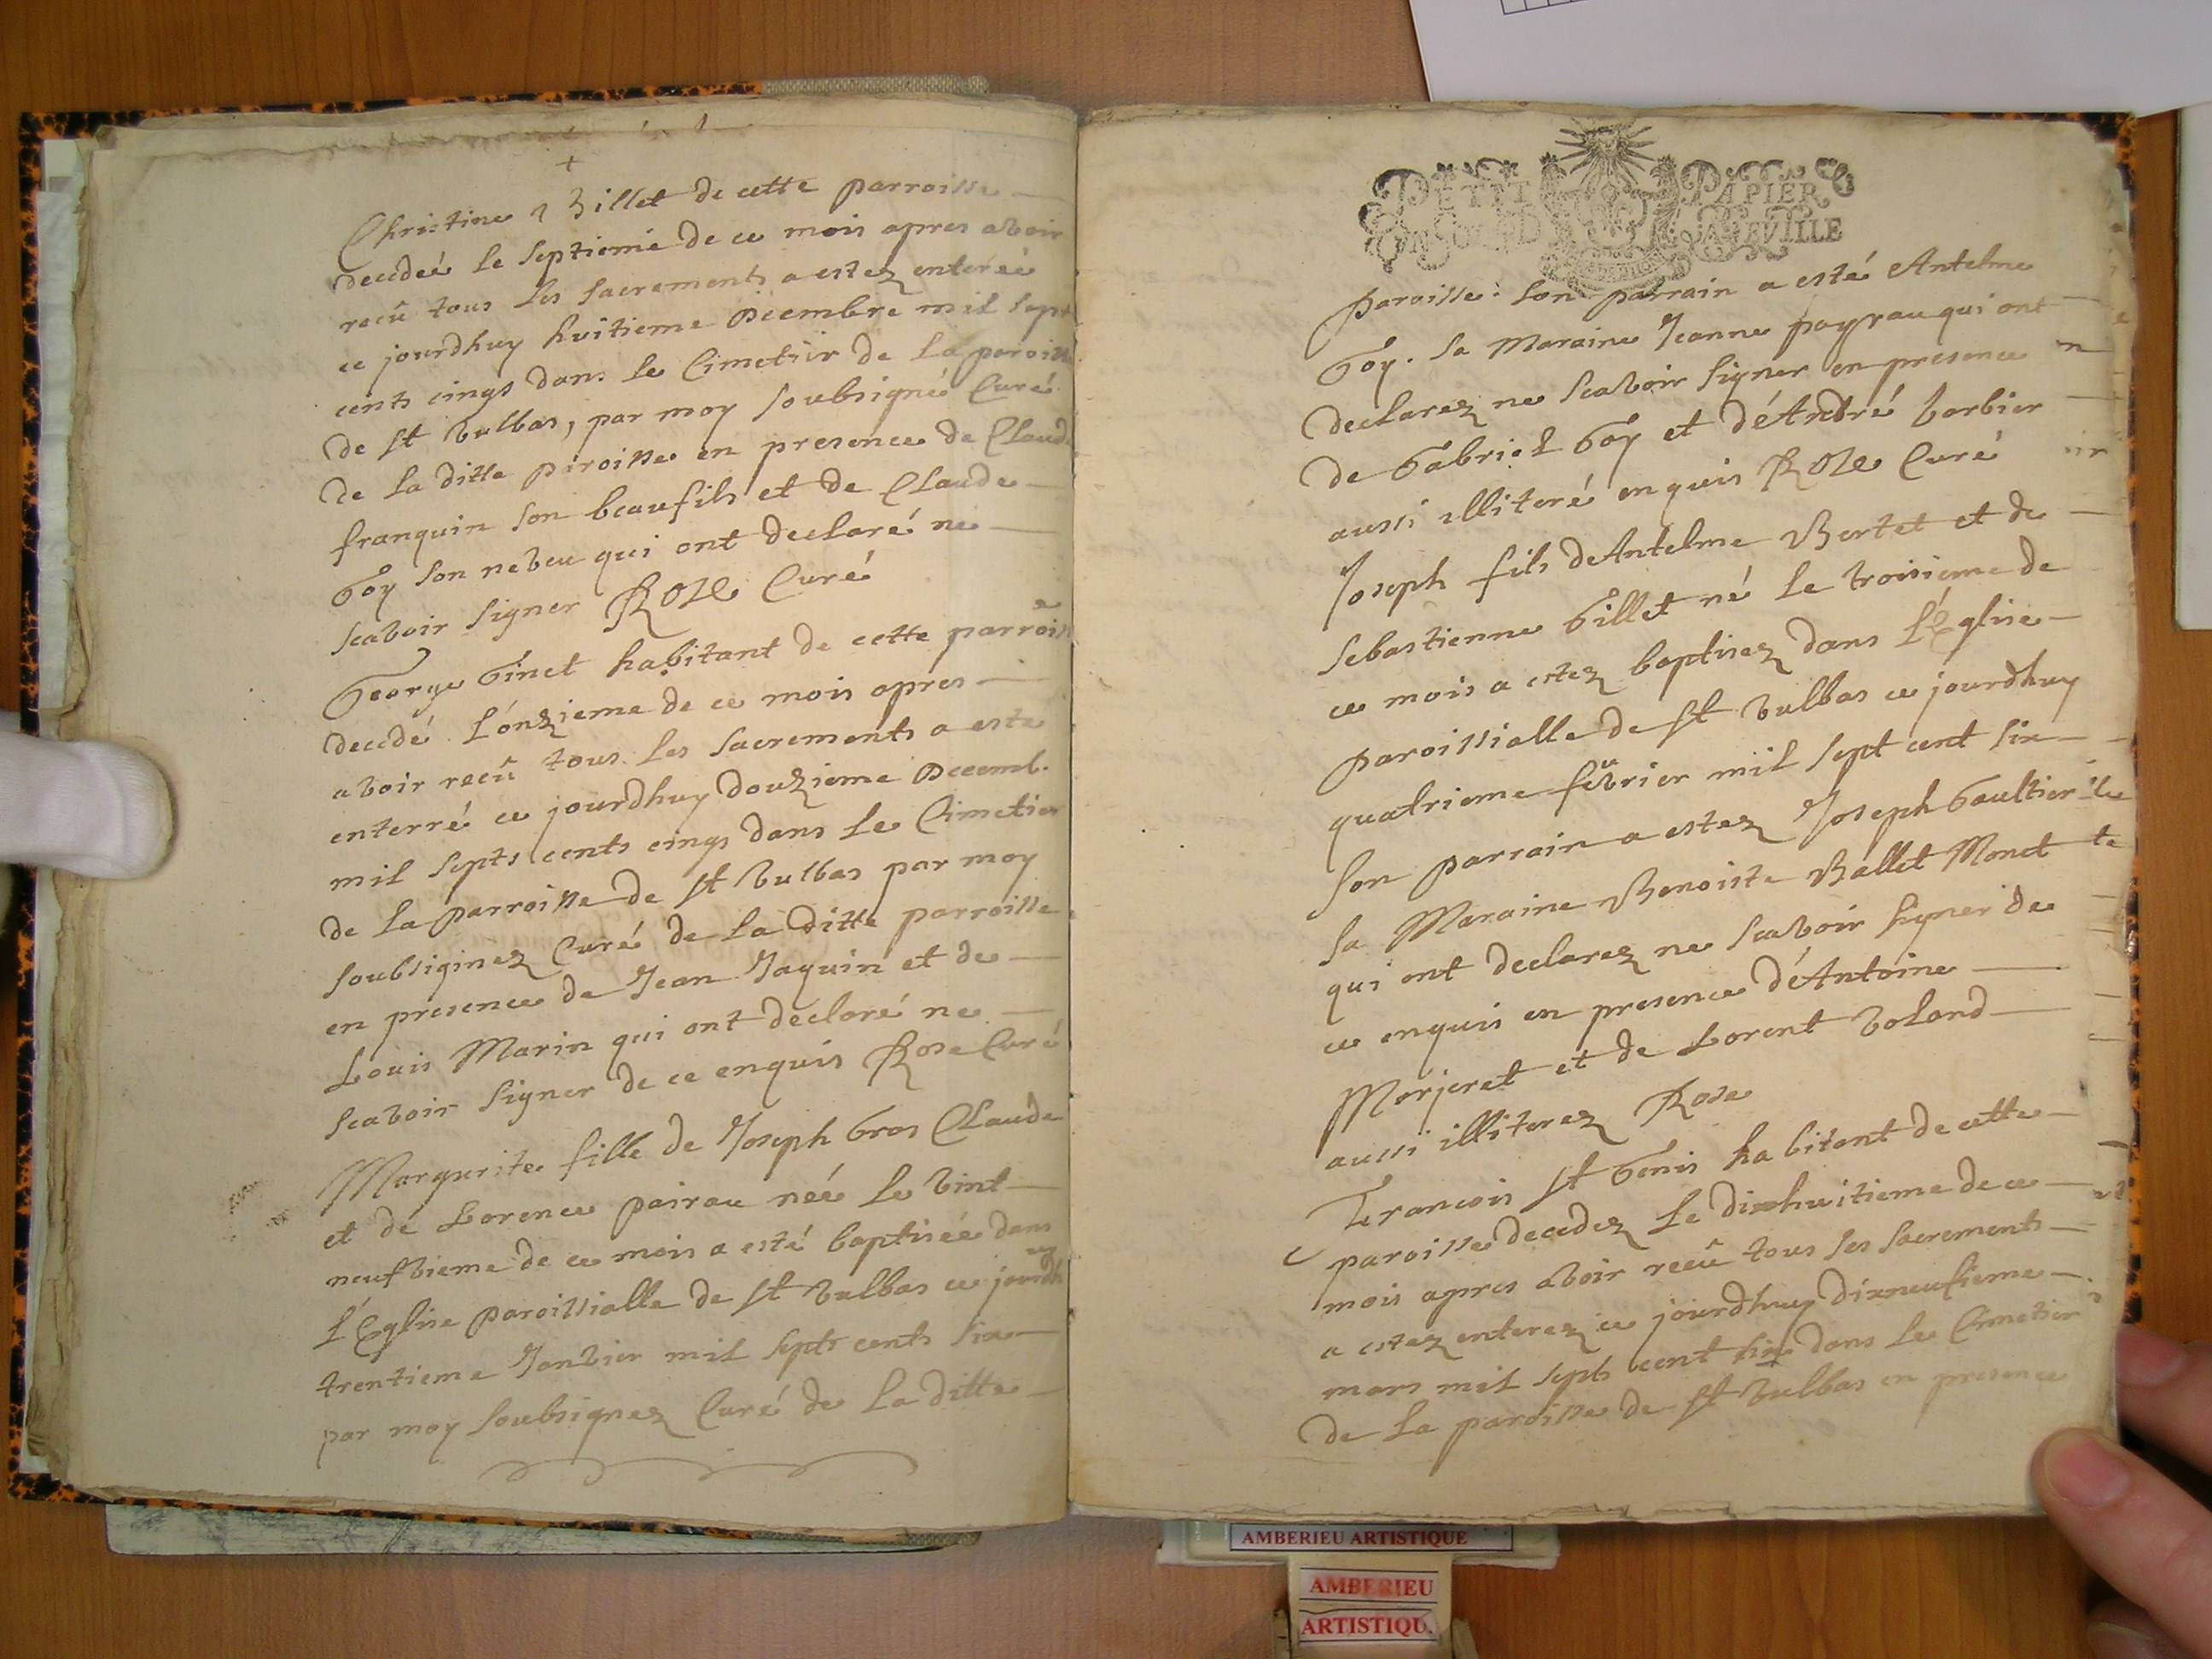 Christine Billet de cette parroisse
decedeé le septieme de ce mois apres avoir
recû tous les sacrements a estez enterée
ce jourdhuy huitieme Decembre mil sept
cents cinqs dans le Cimetiir de la paroiss
de st Vulbas, par moy soubsigné Curé
de la ditte paroisse en presence de Claude
franquin son beaufils et de Claude
Goy son neveu qui ont declaré ne
scavoir signer Rose Curé
George Ginet habitant de cette parroisse
decedé l'onzieme de ce mois apres
avoir recû tous les sacrements a este
enterré ce jourdhuy douzieme Decemb.
mil septs cents cinqs dans le Cimetier
de la parroisse de st Vulbas par moy
soubsiginez Curé de la ditte parroisse
en presence de Jean Jaquin et de
Louis Marin qui ont declaré ne
scavoir signer de ce enquis Rose Curé
Margurite fille de Joseph Gros Claude
et de Lorence pairau neé le vint
neufvieme de ce mois a esté baptisée dans
l'Eglise paroissialle de st Vulbas ce jourdhuy
trentieme Janvier mil septs cents six
par moy soubsignez Curé de la ditte
PETIT PAPIER
paroisse: son parrain a esté Antelme
Goy. sa Maraine Jeanne payrau qui ont
declarez ne scavoir signer en presence
de Gabriel Goy et d'André barbier
aussi illiteré enquis Rose Curé
Joseph fils deAntelme Bertet et de
sebastienne Gillet né le troisieme de
ce mois a estez baptisez dans l'Eglise
paroissialle de st Vulbas ce jourdhuy
quatrieme fevrier mil sept cent six
son parrain a estez Joseph Gaultier
sa Maraine Benoiste Ballet Monet
qui ont declarez ne scavoir signer de
ce enquis en presence d'Antoine
Morjeret et de Lorent Voland
aussi illiterez Rose
Francois st Genis habitant de cette
paroisse decedez le dixhuitieme de ce
mois apres avoir recû tous les sacrements
a estez enterez ce jourdhuy dixneufieme
mars mil septs cent six dans le Cimetier
de la paroisse de st Vulbas en presence
AMBERIEU ARTISTIQUE
AMBERIEU
ARTISTIQU